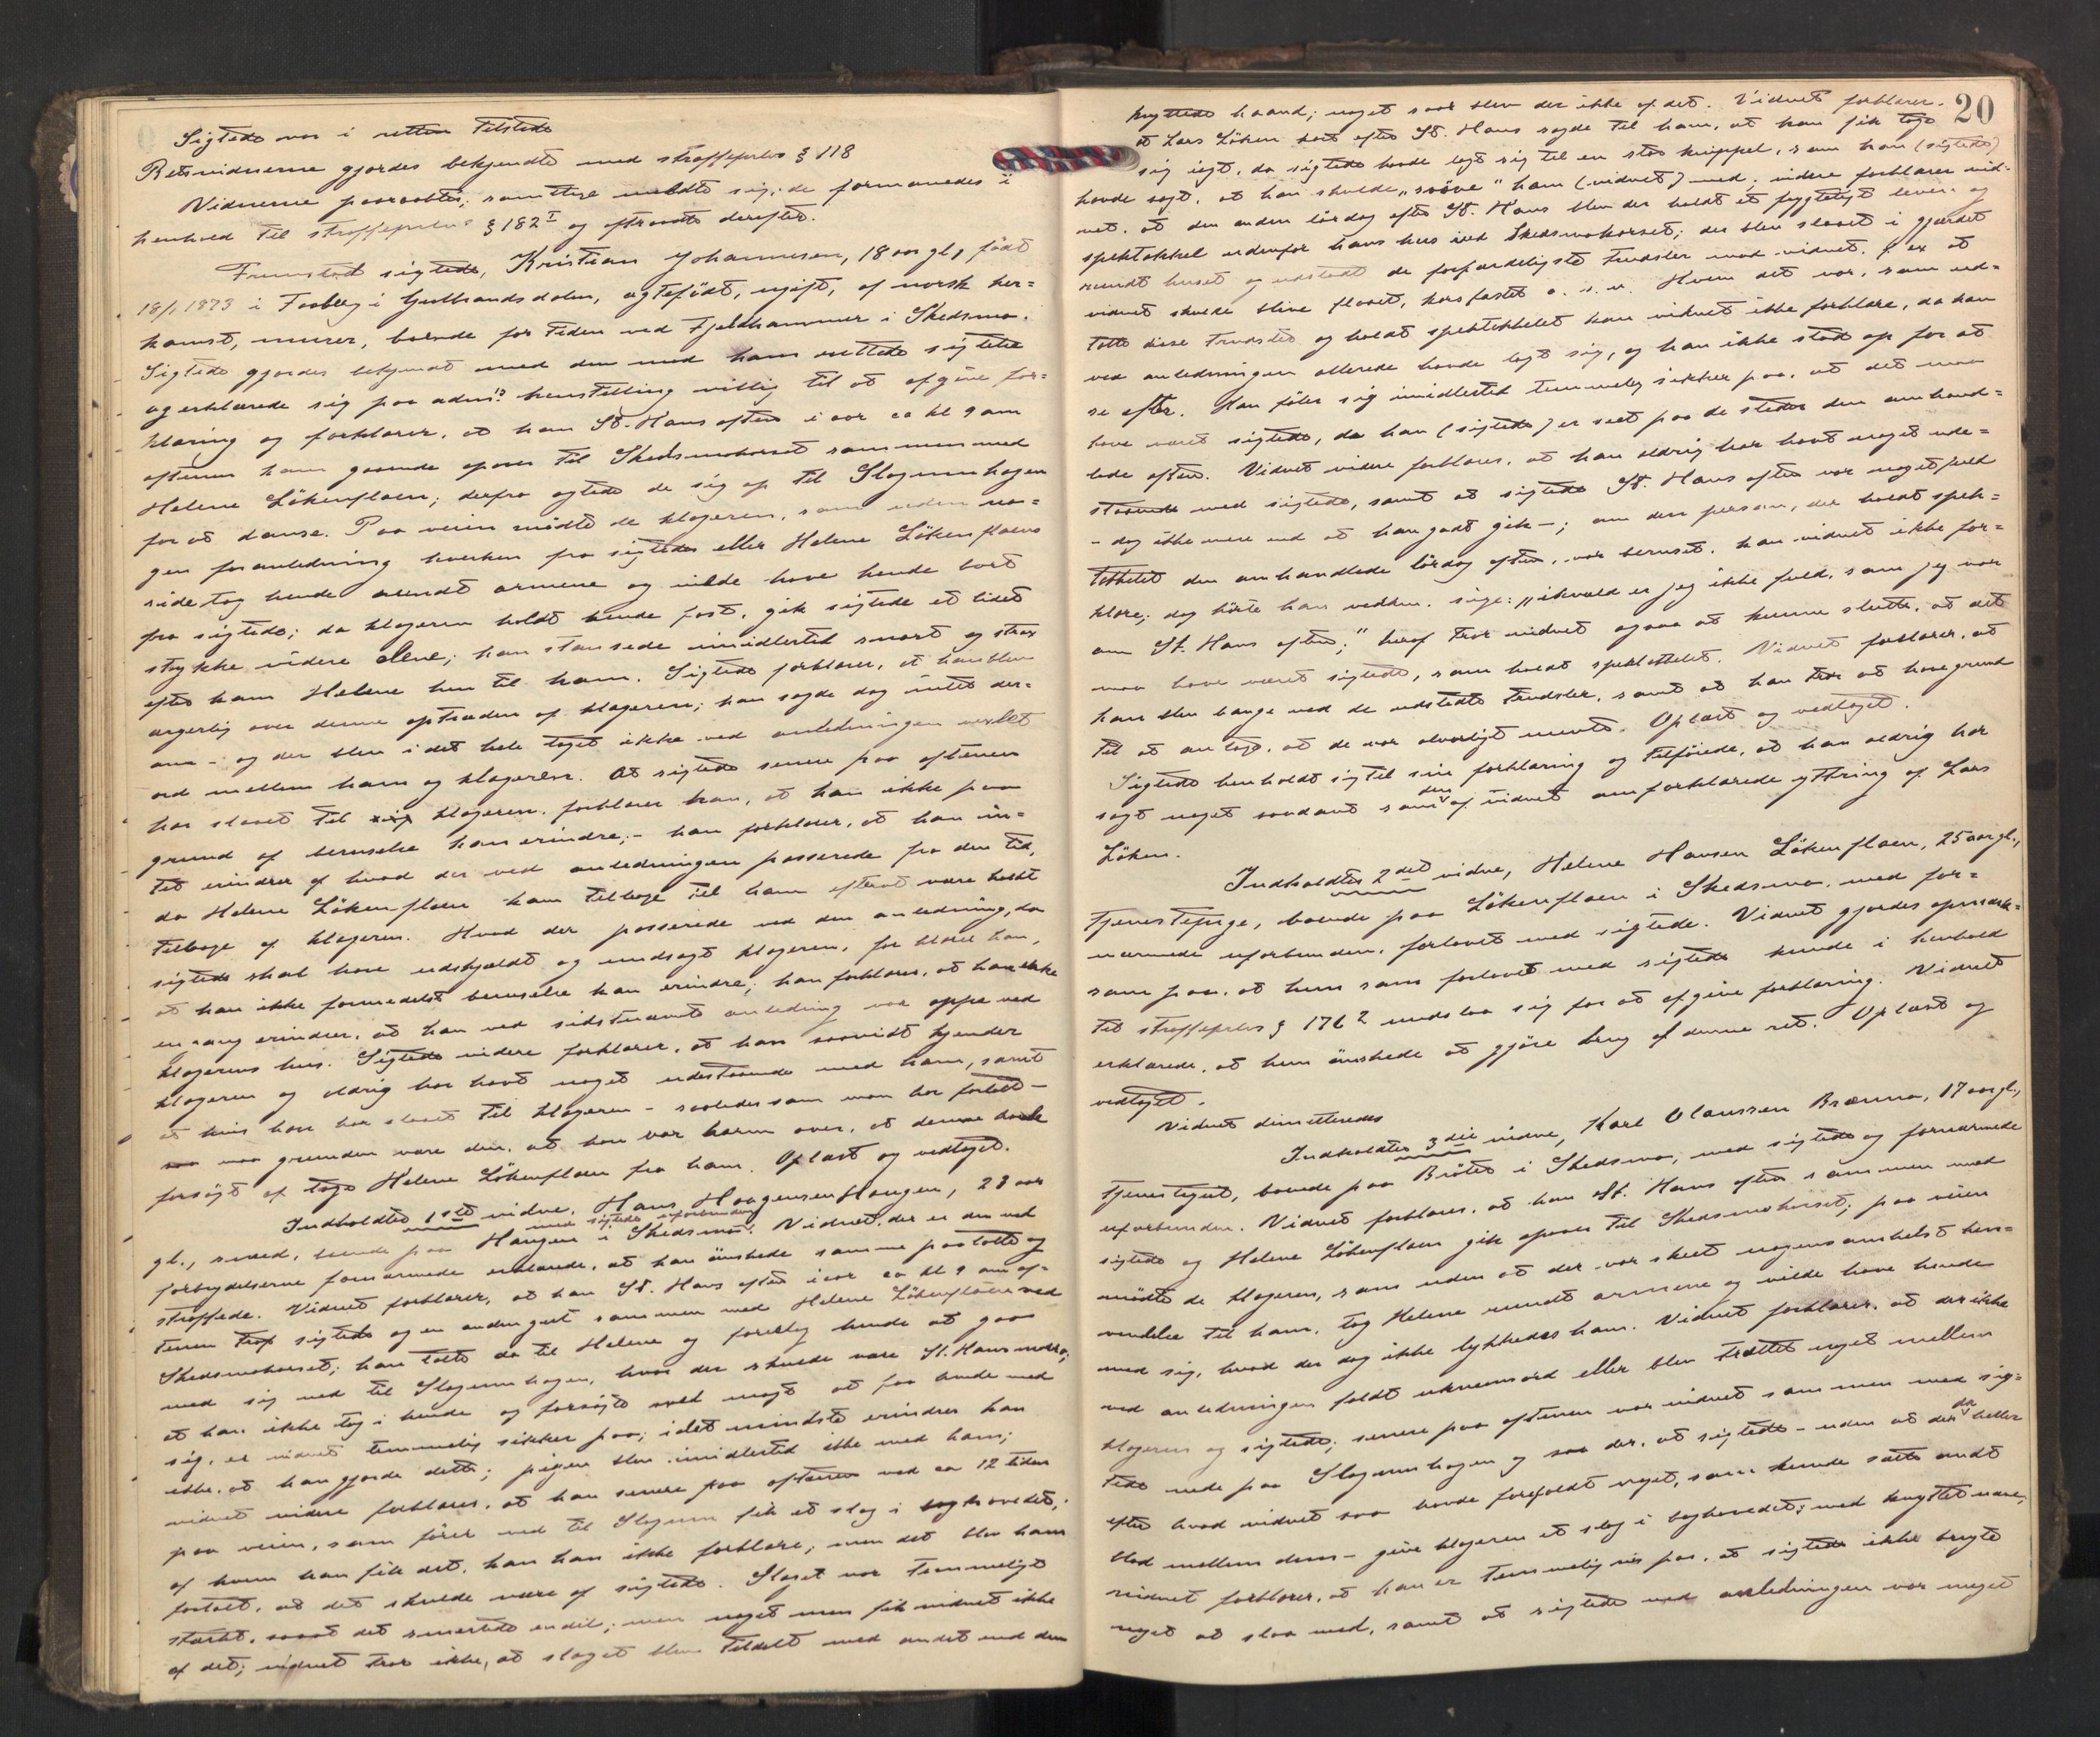 Sigtede var i retten tilstede
Retsvidnerne gjordes bekjendte med straffeprlov § 118
Vidnerne paaraabtes; samtlige meldte sig; de formanedes i
henhold til straffeprlov § 182 I og aftraadte derefter.
Fremstod sigtede, Kristian Johannesen, 18 aar gl, født
18/1 1873 i Faaberg i Gudbrandsdalen, ægtefødt, ugift, af norsk her-
komst, murer, boende for tiden ved Fjeldhammer i Skedsmo.
Sigtede gjordes bekjendt med den mod ham rettede sigtelse
og erklærede sig paa adm.s henstilling villig til at afgive for-
klaring og forklarer, at han St. Hansaften i aar ca kl 9 om
aftenen kom gaaende opover til Skedsmokorset sammen med
Helene Løkenflaen; derfra agtede de sig op til Slogumhagen
for at danse. Paa veien mødte de klageren, som uden no-
gen foranledning hverken fra sigtedes eller Helene Løkenflaens
side tog hende rundt armene og vilde have hende bort
fra sigtede; da klageren holdt hende fast, gik sigtede et lidet
stykke videre alene; han stansede imidlertid snart og strax
efter kom Helene hen til ham. Sigtede forklarer, at han blev
ærgerlig over denne optræden af klageren; han sagde dog intet der-
om - og der blev i det hele taget ikke ved anledningen vexlet
ord mellem ham og klageren. At sigtede senere paa aftenen
har slaaet til klageren, forklarer han, at han ikke paa
grund af beruselse kan erindre; - han forklarer, at han in-
tet erindrer af hvad der ved anledningen passerede fra den tid,
da Helene Løkenflaen kom tilbage til ham efterat være holdt
tilbage af klageren. Hvad der passerede ved den anledning, da
sigtede skal have udskjældt og undsagt klageren, forklarer han,
at han ikke formedelst beruselse kan erindre; han forklarer, at han ikke
engang erindrer, at han ved sidstnævnte anledning var oppe ved
klagerens hus. Sigtede videre forklarer, at han saavidt kjender
klageren og aldrig har havt noget udestaaende med ham, samt
at hvis han har slaaet til klageren - saaledes som man har fortalt -
maa grunden være den, at han var harm over, at denne havde
forsøgt at tage Helene Løkenflaen fra ham. Oplæst og vedtaget.
Indkaldtes 1ste vidne, Hans Haagensen Haugen, 28 aar
med sigtede uforbunden
gl., smed, boende paa Haugen i Skedsmo. Vidnet, der er den ved
forbrydelserne fornærmede erklærede, at han ønskede samme paatalte og
straffede. Vidnet forklarer, at han St. Hansaften i aar ca kl 9 om af-
tenen traf sigtede og en anden gut sammen med Helene Løkenflaen ved
Skedsmokorset; han talte da til Helene og foreslog hende at gaa
med sig ned til Slogumhagen, hvor der skulde være St. Hansmoro;
at han ikke tog i hende og forsøgte med magt at faa hende med
sig, er vidnet temmelig sikker paa; i det mindste erindrer han
ikke, at han gjorde dette; pigen blev imidlertid ikke med ham;
vidnet videre forklarer, at han senere paa aftenen ved ca 12 tiden
paa veien, som fører ned til Slogum fik et slag i baghovedet;
af hvem han fik det, kan han ikke forklare; men det blev ham
fortalt, at det skulde være af sigtede. Slaget var temmeligt
stærkt, saaat det smertede endel; men noget men fik vidnet ikke
af det; vidnet tror ikke, at slaget blev tildelt med andet end den
20
knyttede haand; noget saar blev der ikke af det. Vidnet forklarer,
at Lars Løken kort efter St. Hans sagde til ham, at han fik tage
sig iagt, da sigtede havde lagt sig til en stor knippel, som han (sigtede)
havde sagt, at han skulde "søve" ham (vidnet) med; videre forklarer vid-
net, at den anden lørdag efter St. Hans blev der holdt et frygteligt leven og
spektakkel udenfor hans hus ved Skedsmokorset; der blev slaaet i gjærdet
rundt huset og udstødt de forfærdeligste trudsler mod vidnet, f. ex. at
vidnet skulde blive flaaet, korsfæstet o. s. v. Hvem det var, som ud-
talte disse trudsler og holdt spektaklet kan vidnet ikke forklare, da han
ved anledningen allerede havde lagt sig, og han ikke stod op for at
se efter. Han føler sig imidlertid temmelig sikker paa, at det maa
have været sigtede, da han (sigtede) er seet paa de steder den omhand-
lede aften. Vidnet videre forklarer, at han aldrig har havt noget ude-
staaende med sigtede, samt at sigtede St. Hansaften var noget fuld
- dog ikke mere end at han godt gik -; om den person, der holdt spek-
taklet den omhandlede lørdag aften, var beruset, kan vidnet ikke for-
klare; dog hørte han vedkom. sige: "ikvæld er jeg ikke fuld, som jeg var
om St. Hans aften;" heraf tror vidnet ogsaa at kunne slutte, at det
maa have været sigtede, som holdt spektaklet. Vidnet forklarer, at
han blev bange ved de udstødte trudsler, samt at han tror at have grund
til at antage, at de var alvorligt mente. Oplæst og vedtaget.
Sigtede henholdt sig til sin forklaring og tilføiede, at han aldrig har
sagt noget saadant som den af vidnet omforklarede yttring af Lars
Løken.
Indkaldtes 2det vidne, Helene Hansen Løkenflaen, 25 aar gl.,
tjenestepige, boende paa Løkenflaen i Skedsmo, med for-
nærmede uforbunden, forlovet med sigtede. Vidnet gjordes opmærk-
som paa, at hun som forlovet med sigtede kunde i henhold
til straffeprlov § 176 2 undslaa sig for at afgive forklaring. Vidnet
erklærede, at hun ønskede at gjøre brug af denne ret. Oplæst og
vedtaget.
Vidnet dimitteredes
Indkaldtes 3die vidne, Karl Olaussen Brænna, 17 aar gl.,
tjenestegut, boende paa Brøter i Skedsmo, med sigtede og fornærmede
uforbunden. Vidnet forklarer, at han St. Hans aften sammen med
sigtede og Helene Løkenflaen gik opover til Skedsmokorset; paa veien
mødte de klageren, som uden at der var skeet nogensomhelst hen-
vendelse til ham, tog Helene rundt armene og vilde have hende
med sig, hvad der dog ikke lykkedes ham. Vidnet forklarer, at der ikke
ved anledningen faldt ukvemsord eller blev trættet noget mellem
klageren og sigtede; senere paa aftenen var vidnet sammen med sig-
tede nede paa Slogumhagen og saa der, at sigtede - uden at der da heller
efter hvad vidnet saa havde forefaldt noget, som kunde sætte ondt
blod mellem dem - give klageren et slag i baghovedet; med knyttet næve,
vidnet forklarer, at han er temmelig vis paa, at sigtede ikke brugte
noget at slaa med, samt at sigtede ved anledningen var meget